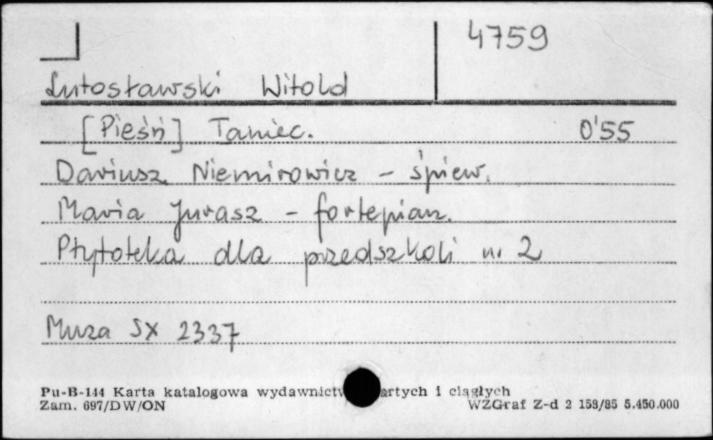 4759
Lutosławski Witold
[Pieśń] Taniec. 0'55
Dariusz Niemirowicz – śpiew.
Maria Jurasz – fortepian.
Płytoteka dla przedszkoli nr 2
Muza SX 2337
Pu-B-144 Karta katalogowa wydawnictw artych i ciągłych
Zam. 697/DW/ON WZGraf Z-d 2 153/85 5.450.000